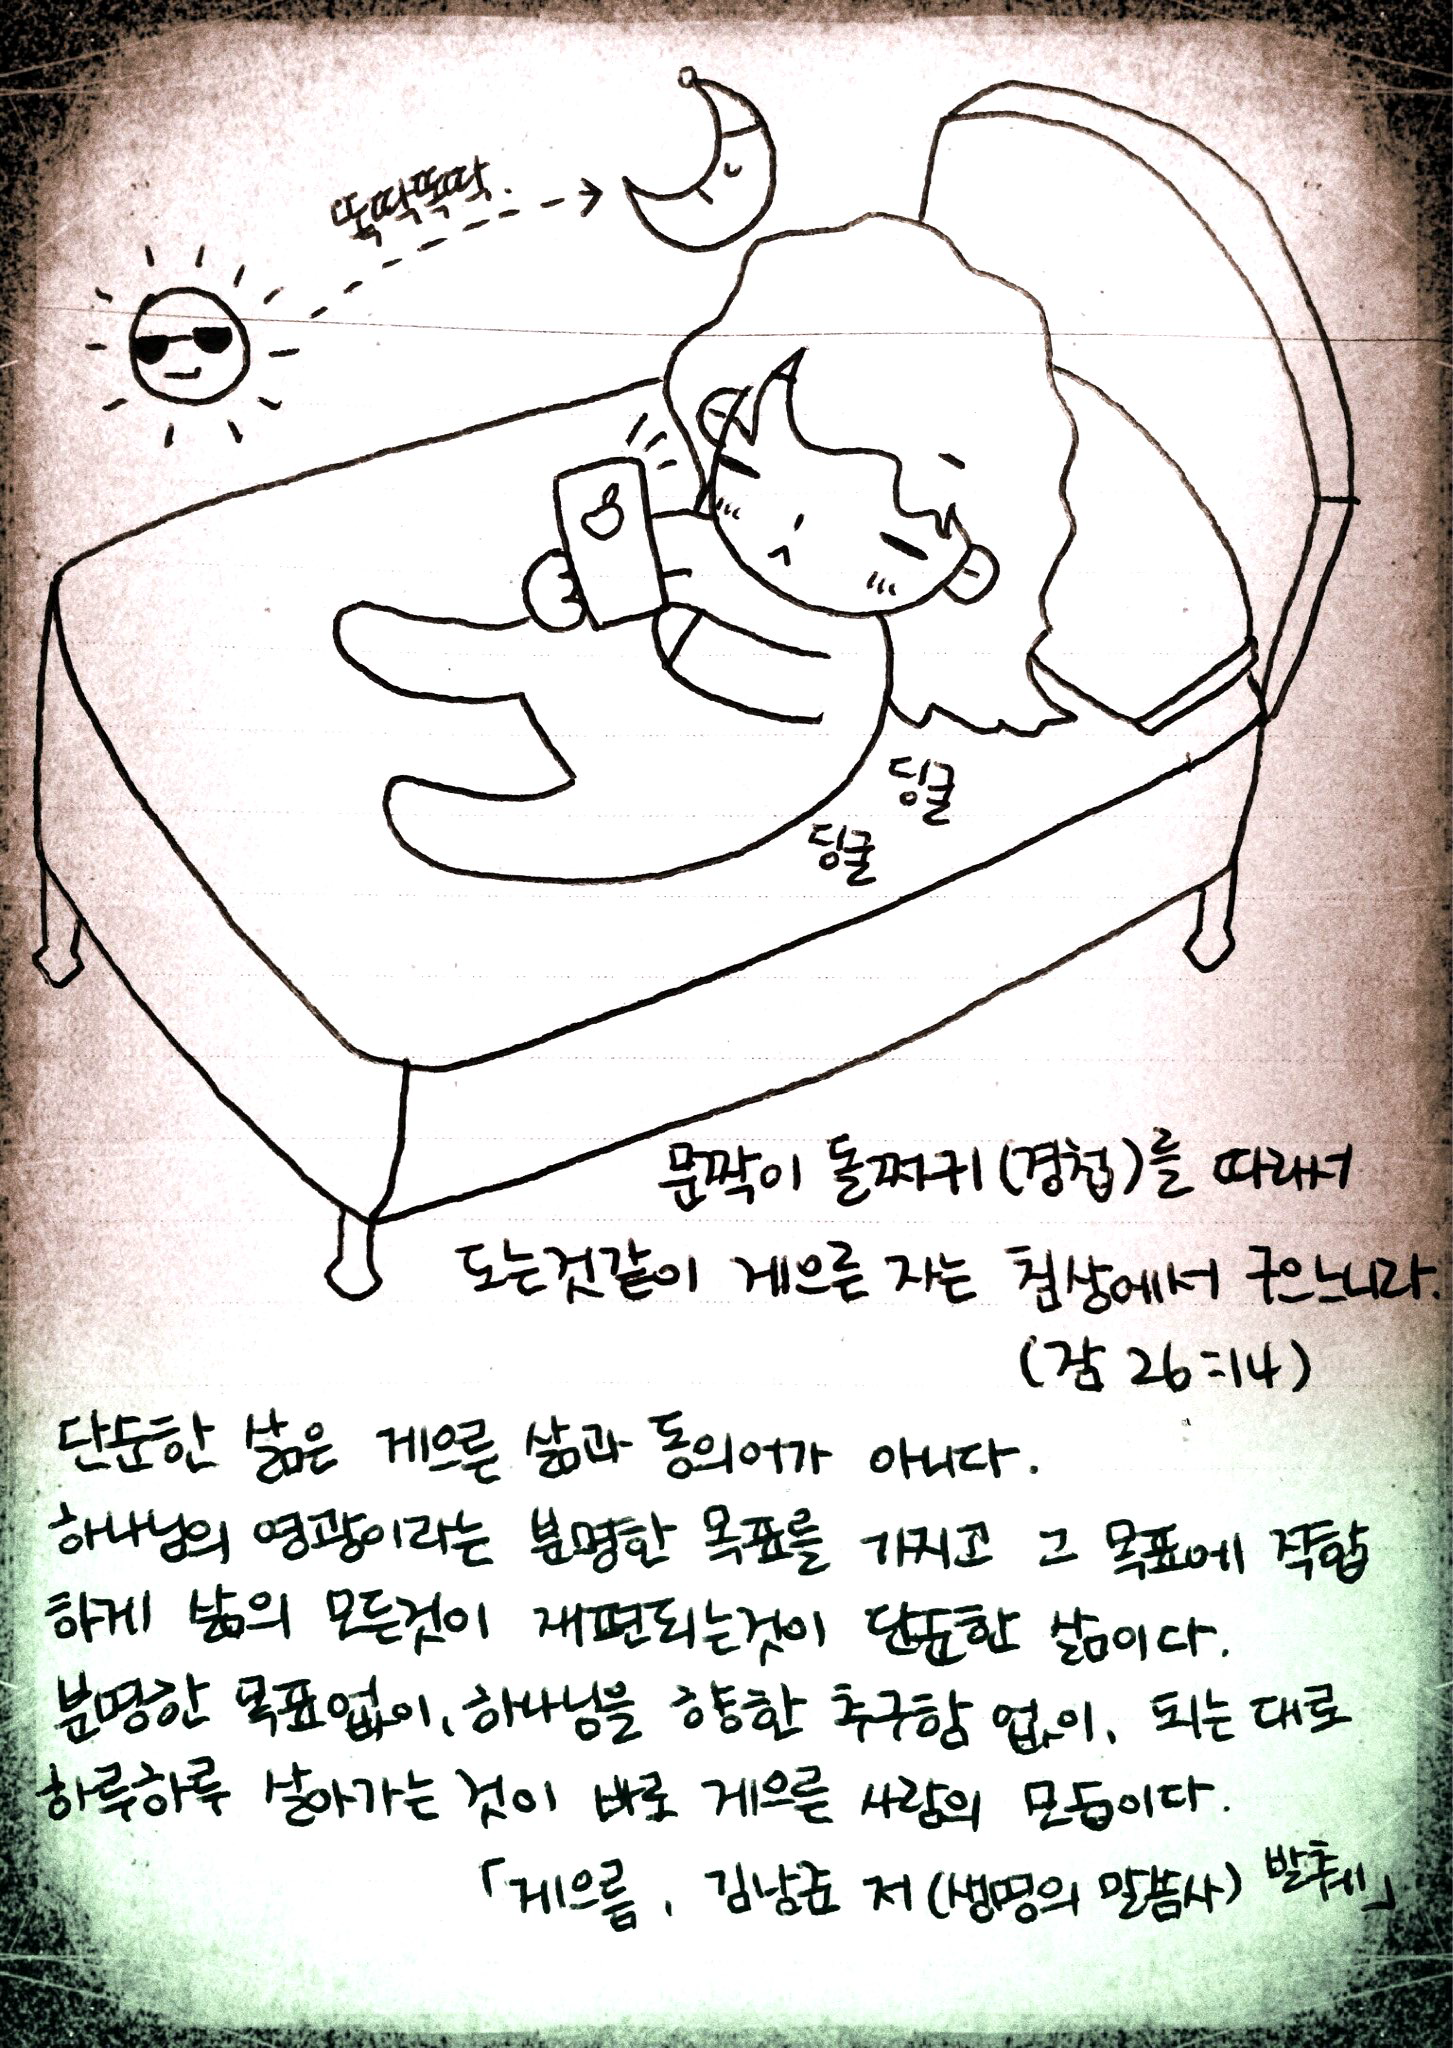 뚝딱뚝딱.
딩굴
딩굴
문짝이 돌쩌귀(경첩)를 따라서
도는것같이 게으른 자는 침상에서 구으느니라.
(잠 26:14)
단순한 삶은 게으른 삶과 동의어가 아니다.
하나님의 영광이라는 분명한 목표를 가지고 그 목표에 적합
하게 삶의 모든것이 재편되는것이 단순한 삶이다.
분명한 목표없이, 하나님을 향한 추구함 없이, 되는대로
하루하루 살아가는 것이 바로 게으른 사람의 모습이다.
「게으름, 김남준 저 (생명의 말씀사) 발췌」